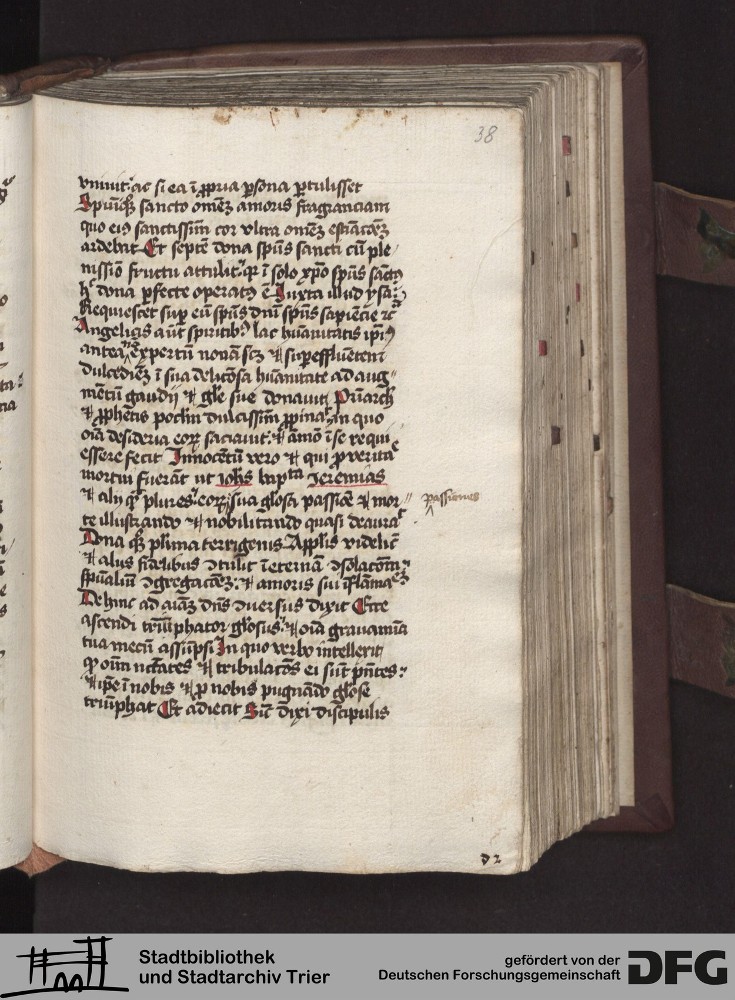 38
vniuit: ac si ea ī ꝓpria ꝑsona ꝑtulisset
Spūiqꝫ sancto omēꝫ amoris fragranciam
quo eiꝰ sanctissim̄ cor vltra omēꝫ
ardebat Et septē dona spūs sancti cū ple
nissīo fructu attulit: qꝛ ī solo xp̄o spūs sāctꝰ
dona ꝑfecte operatꝰ ē Iuxta illud ysa
Requiescet suꝑ eū spūs dnī spūs sapiēcie ⁊c
Angelicis aūt spiritibꝰ hāc hūanitatis ip̄iꝰ
antea expertū nouā scꝫ ⁊ suꝑeffluētem
dulcediēꝫ ī sua delicōsa hūanitate ad aug
mētū gaudij ⁊ gl̄e sue donauit Pr̄iarch
⁊ ꝓphetis poclm̄ dulcissim̄ ꝓpinat in quo
oīa desideria eoꝝ saciauit: ⁊ āmō ī se requi
essere fecit Innocētū vero ⁊ qui ꝓ veritate
mortui fuerāt ut ioh̄s bapt̄a Jeremias
⁊ alij qꝫ plures: eoꝝ sua gl̄osa passiōe ⁊ mor
passiones
te illustrando ⁊ nobilitando quasi deaurat
Dona qꝫ plīma terrigenis Ap̄lis videlic̄
⁊ alijs fidelibus ꝯtulit ī eternā ꝯsolacōm:
sp̄ualiū ꝯgregacōeꝫ: ⁊ amoris sui īflāmaeꝫ
Dehinc ad aīaꝫ dn̄s ꝯuersus dixit Ecce
ascendi triūphator gl̄osus: ⁊ oīa grauamīa
tua mecū assūpsi In quo verbo intellexit
ꝙ om̄ nēcitates ⁊ tribulacōs ei sūt pn̄tes:
⁊ ip̄e ī nobis ⁊ ꝓ nobis pugnādo gl̄ose
triūphat Et adiecit Sic̄ dixi discipulis
d 2
Stadtbibliothek
und Stadtarchiv Trier
gefördert von der
Deutschen Forschungsgemeinschaft
DFG